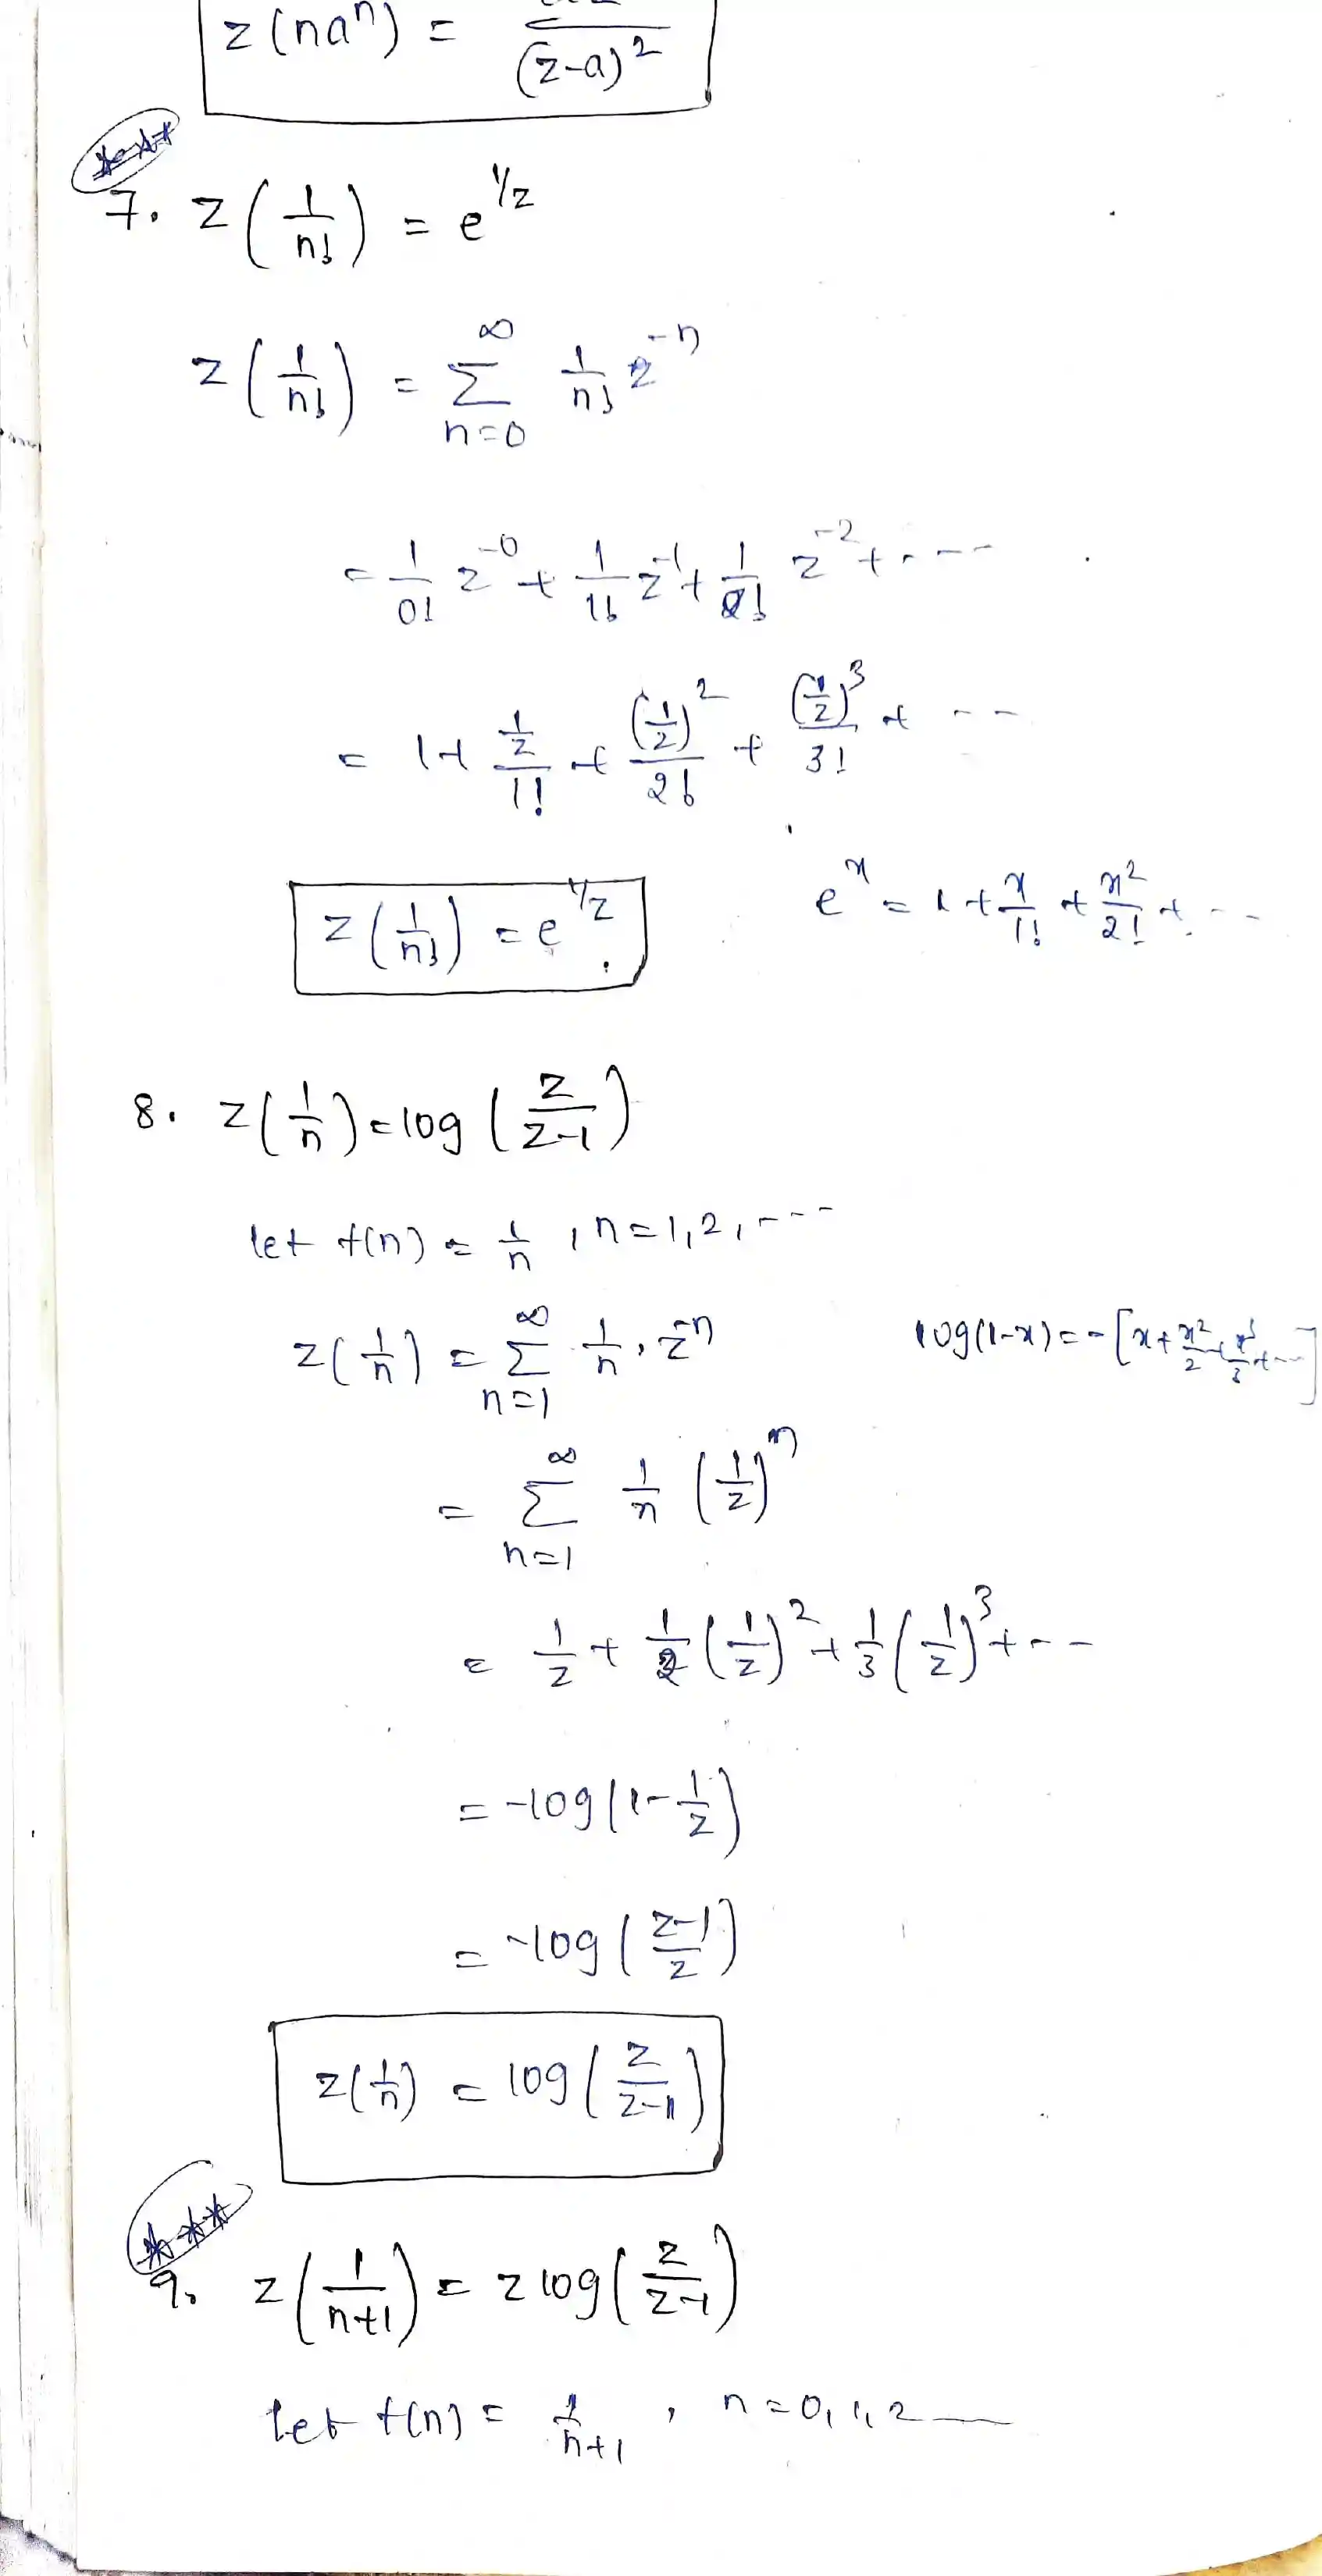 z(naⁿ) = / (z-a)²
***
7. z(1/n!) = e^(1/z)
z(1/n!) = ∑_{n=0}^{∞} 1/n! z^(-n)
= 1/0! z^(-0) + 1/1! z^(-1) + 1/2! z^(-2) + ----
= 1+ (1/z)/1! + (1/z)²/2! + (1/z)³/3! + --
z(1/n!) = e^(1/z).
e^x = 1 + x/1! + x²/2! + ---
8. z(1/n) = log(z/(z-1))
let f(n) = 1/n , n=1,2,---
z(1/n) = ∑_{n=1}^{∞} 1/n . z^(-n)
log(1-x) = -[x + x²/2 + x³/3 + ---]
= ∑_{n=1}^{∞} 1/n (1/z)^n
= 1/z + 1/2 (1/z)² + 1/3 (1/z)³ + --
= -log(1-1/z)
= -log((z-1)/z)
z(1/n) = log(z/(z-1))
***
9. z(1/(n+1)) = z log(z/(z-1))
let f(n) = 1/(n+1) , n=0,1,2 —